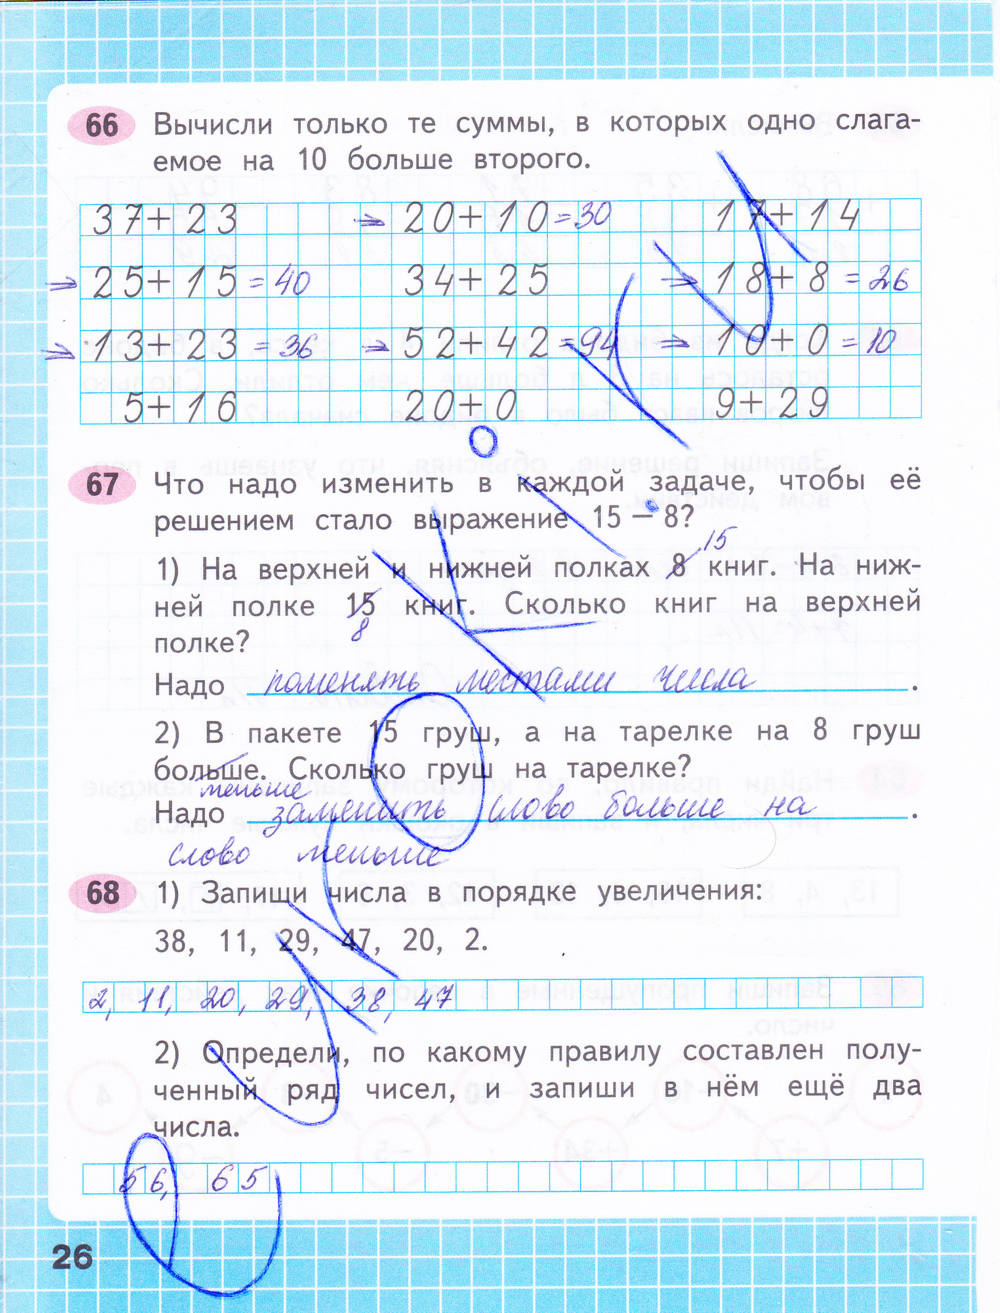 66 Вычисли только те суммы, в которых одно слага-
емое на 10 больше второго.
37+23 → 20+10=30 17+14
→ 25+15=40 34+25 → 18+8=26
→ 13+23=36 → 52+42=94 → 10+0=10
5+16 20+0 9+29
67 Что надо изменить в каждой задаче, чтобы её
решением стало выражение 15 – 8?
15
1) На верхней и нижней полках 8 книг. На ниж-
ней полке 15 книг. Сколько книг на верхней
8
полке?
Надо поменять местами числа.
2) В пакете 15 груш, а на тарелке на 8 груш
больше. Сколько груш на тарелке?
меньше
Надо заменить слово больше на.
слово меньше
68 1) Запиши числа в порядке увеличения:
38, 11, 29, 47, 20, 2.
2, 11, 20, 29, 38, 47
2) Определи, по какому правилу составлен полу-
ченный ряд чисел, и запиши в нём ещё два
числа.
56, 65
26